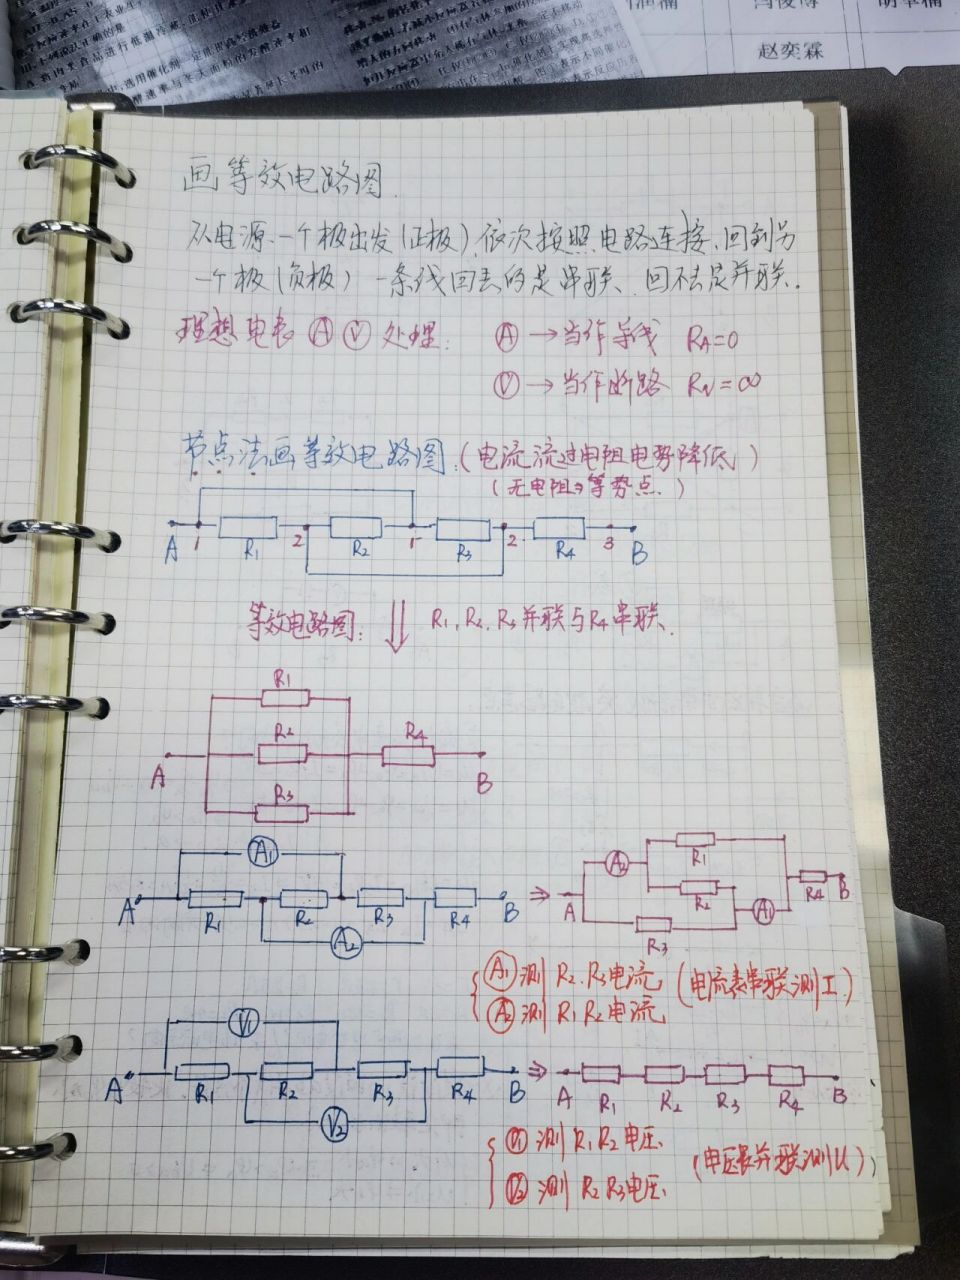 赵奕霖
画等效电路图.
从电源一个极出发(正极).依次按照电路连接,回到另
一个极(负极) 一条线回去的是串联、回不去是并联.
理想电表 Ⓐ Ⓥ 处理: Ⓐ → 当作导线 RA=0
Ⓥ → 当作断路 RV=∞
节点法画等效电路图.(电流流过电阻电势降低)
(无电阻→等势点.)
A 1 R1 2 R2 1 R3 2 R4 3 B
等效电路图: ⇓ R1、R2、R3并联与R4串联.
R1
R2 R4
A B
R3
A1 A2 R1
A R1 R2 R3 R4 B ⇒ A R2 A1 R4 B
A2 R3
A1 测 R2、R3电流 (电流表串联测I)
A2 测 R1 R2电流
V1
A R1 R2 R3 R4 B ⇒ A R1 R2 R3 R4 B
V2
V1 测 R1 R2 电压. (电压表并联测U)
V2 测 R2 R3电压.